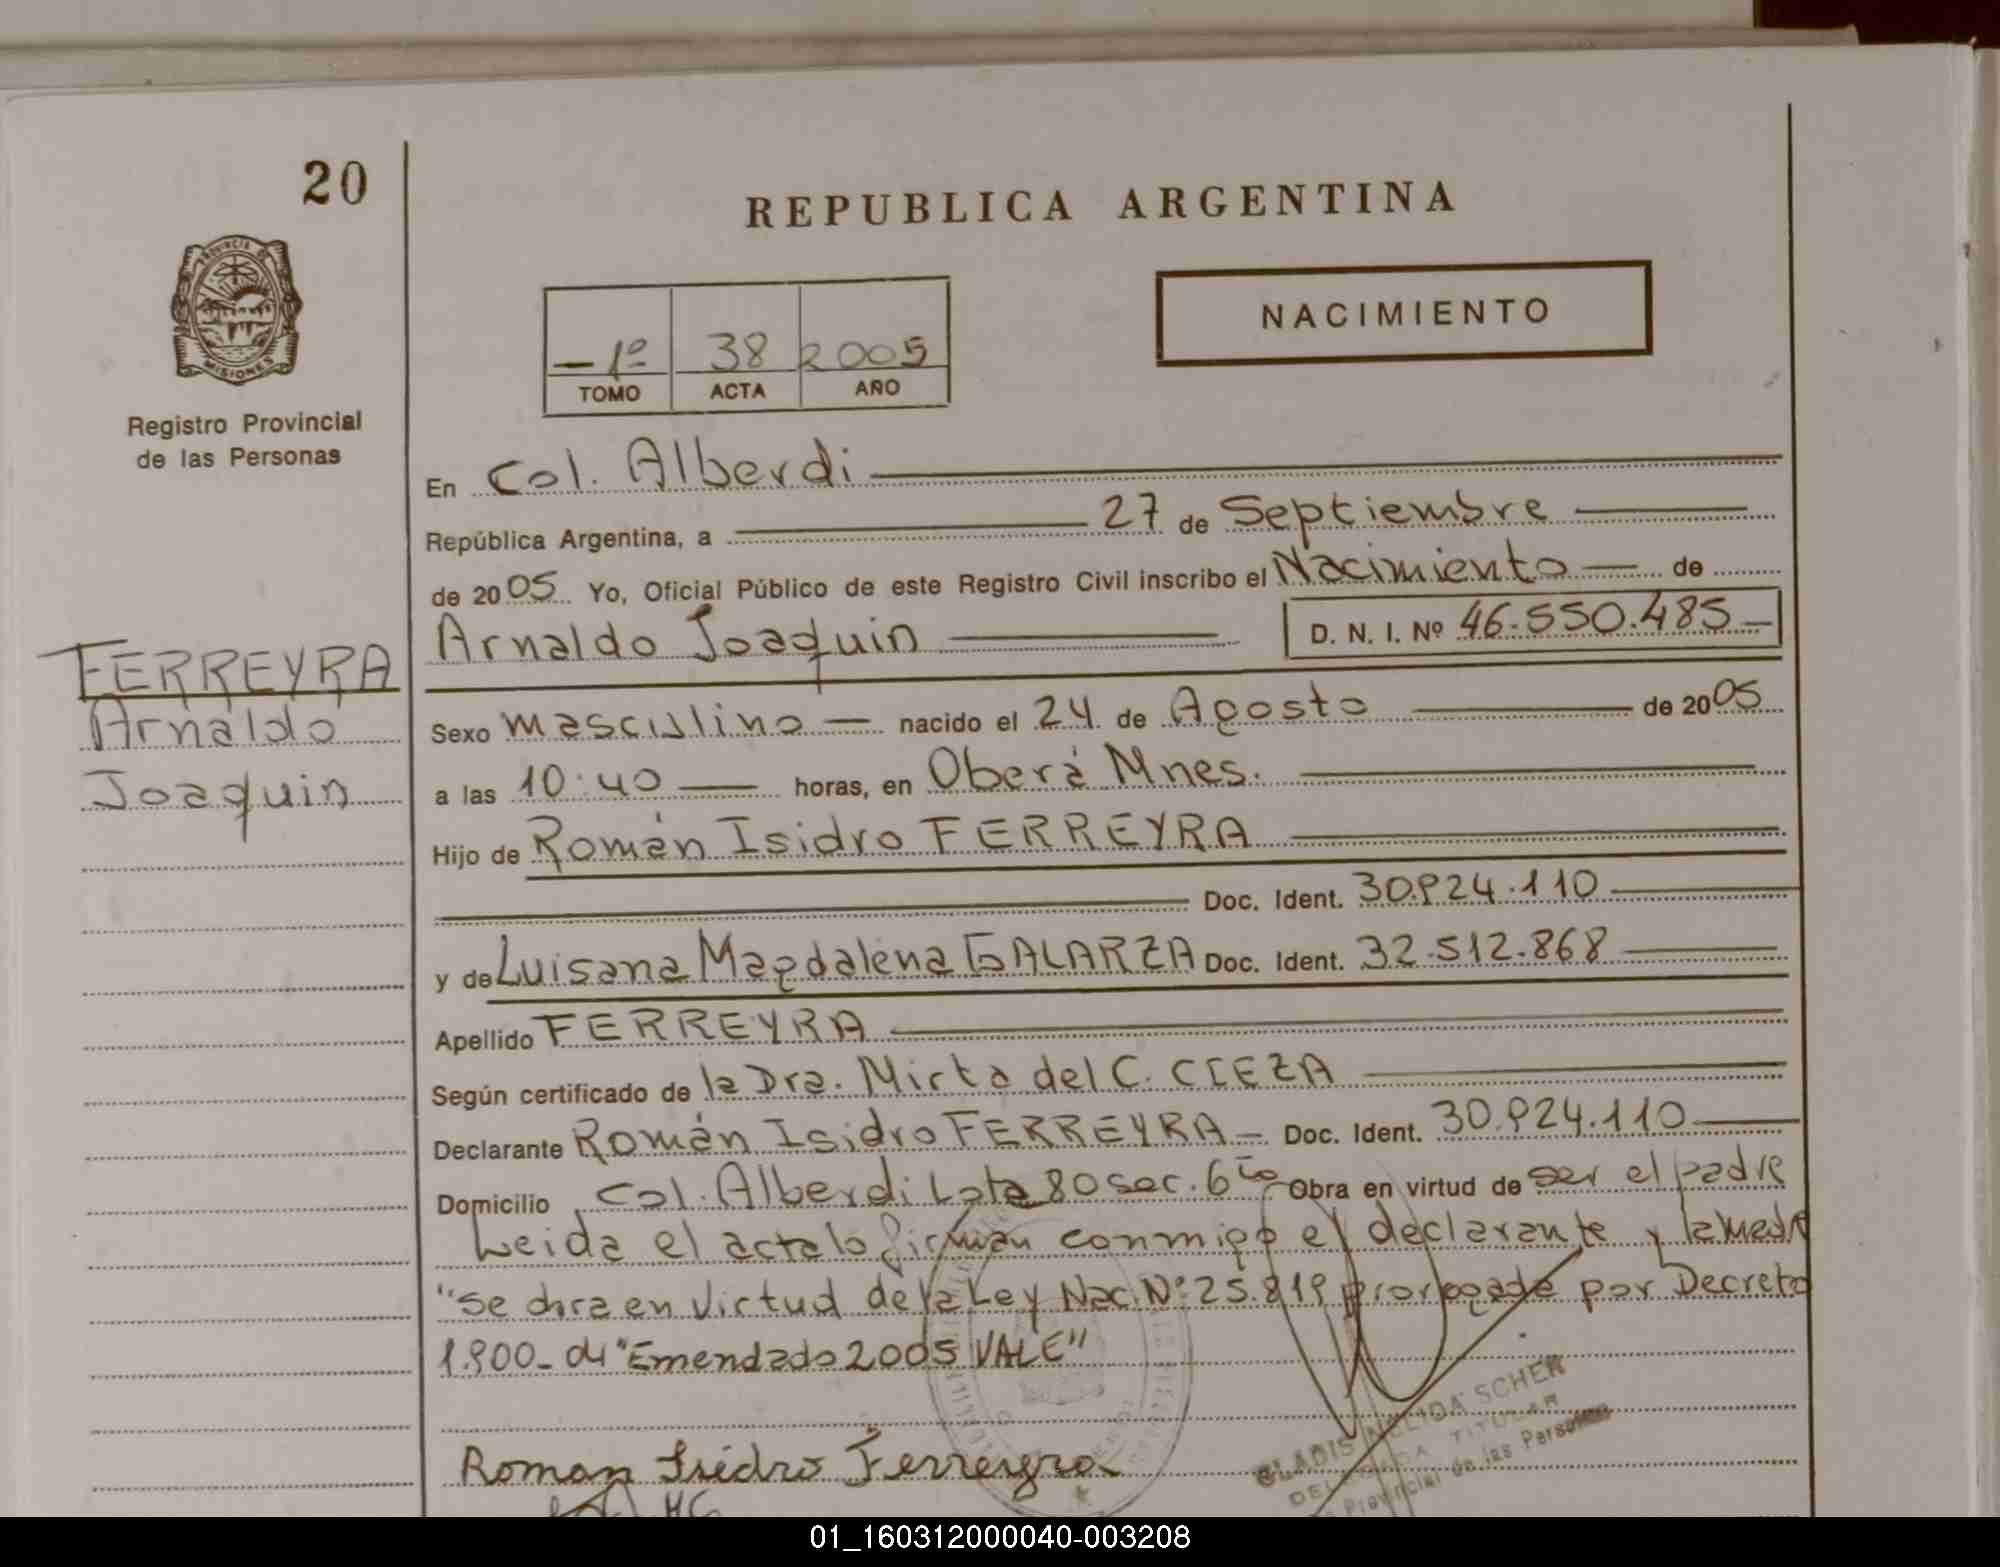 20
REPUBLICA ARGENTINA
MISIONES
Registro Provincial
de las Personas
NACIMIENTO
1º 38 2005
TOMO ACTA AÑO
En Col. Alberdi
República Argentina, a 27 de Septiembre
de 2005 Yo, Oficial Público de este Registro Civil inscribo el Nacimiento de
Arnaldo Joaquin D. N. I. Nº 46.550.485
FERREYRA
Arnaldo
Joaquin
Sexo masculino nacido el 24 de Agosto de 2005
a las 10:40 horas, en Oberá Mnes.
Hijo de Román Isidro FERREYRA
Doc. Ident. 30.924.110
y de Luisana Magdalena GALARZA Doc. Ident. 32.512.868
Apellido FERREYRA
Según certificado de la Dra. Mirta del C. CIEZA
Declarante Román Isidro FERREYRA Doc. Ident. 30.924.110
Domicilio Col. Alberdi Lote 80 sec. 6ta Obra en virtud de ser el padre
Leida el acta lo firman conmigo el declarante y la madre
"Se obra en virtud de la Ley Nac. Nº 25.819 prorrogada por Decreto
1.900- "Emendado 2005 VALE"
Roman Isidro Ferreyra
GLADIS NELIDA SCHER
DELEGADA TITULAR
Provincial de las Personas
01_160312000040-003208